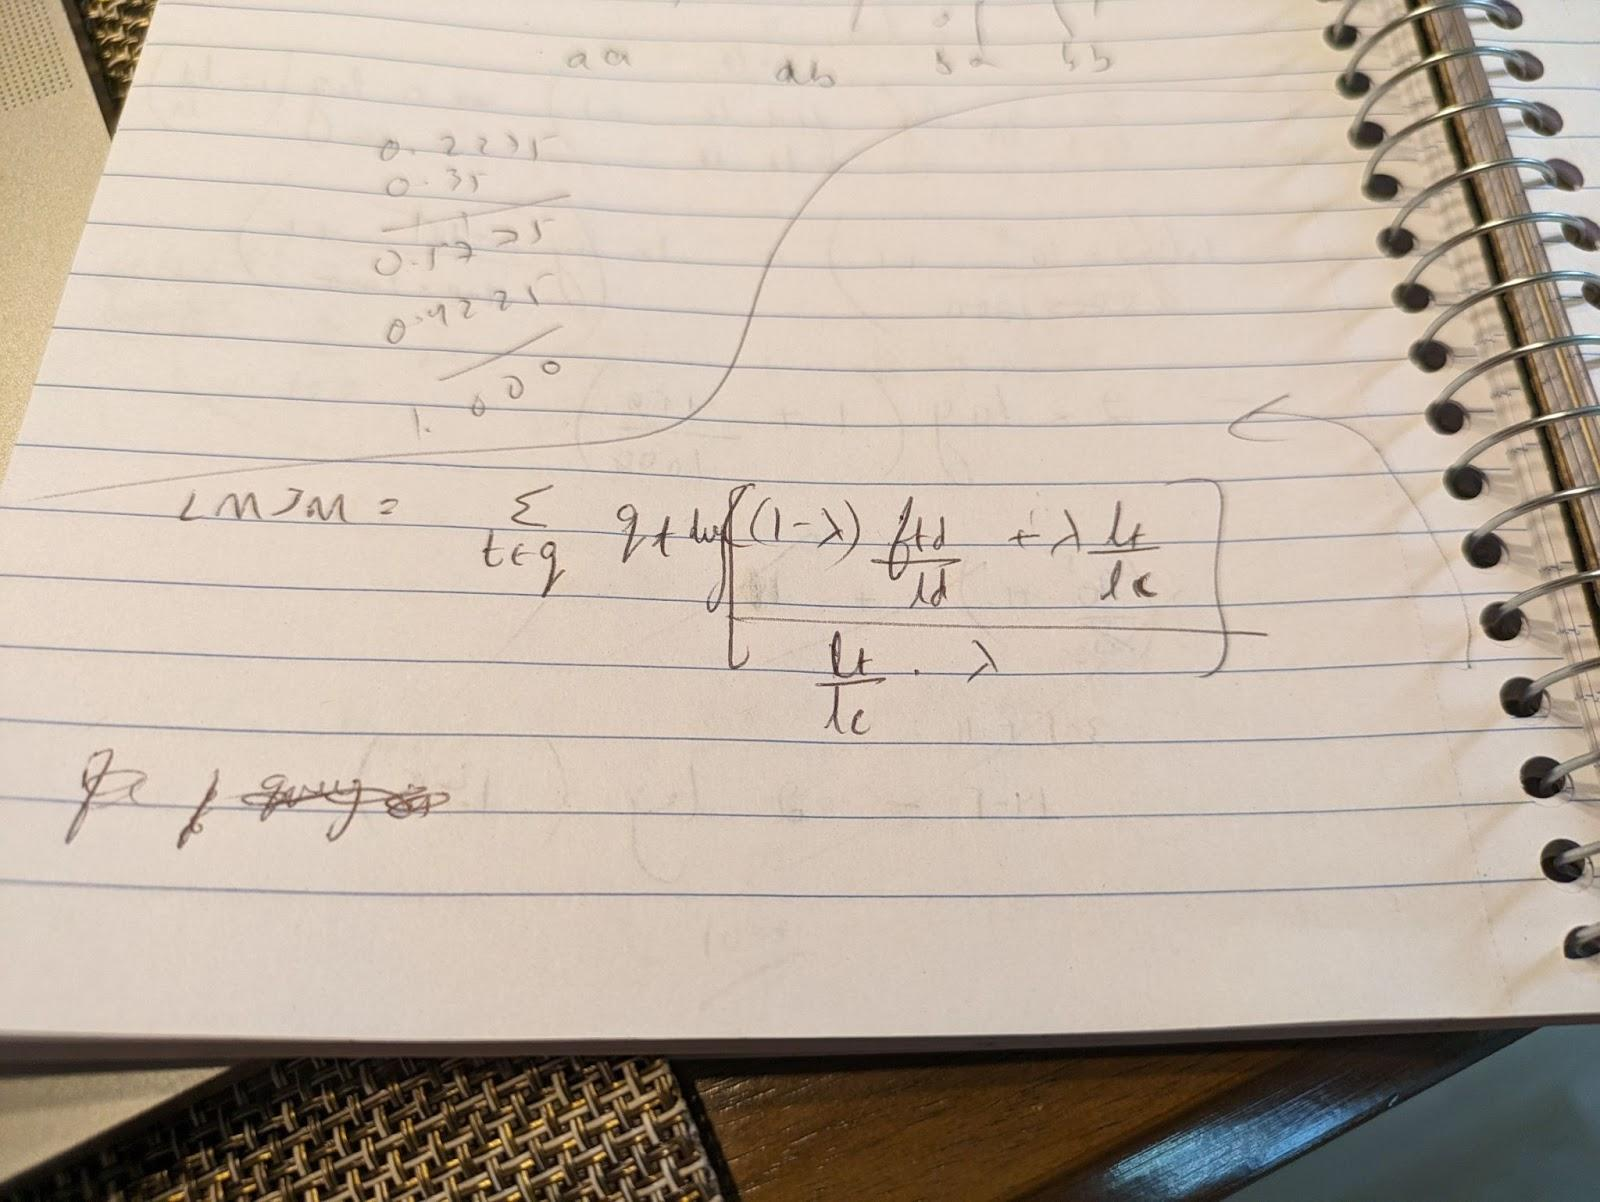 aa ab ba bb
0.2275
0.35
0.5775
0.4225
1.000
LMJM = Σ t∈q qt log [ (1-λ) ftd/ld + λ lt/lc / lt/lc · λ ]